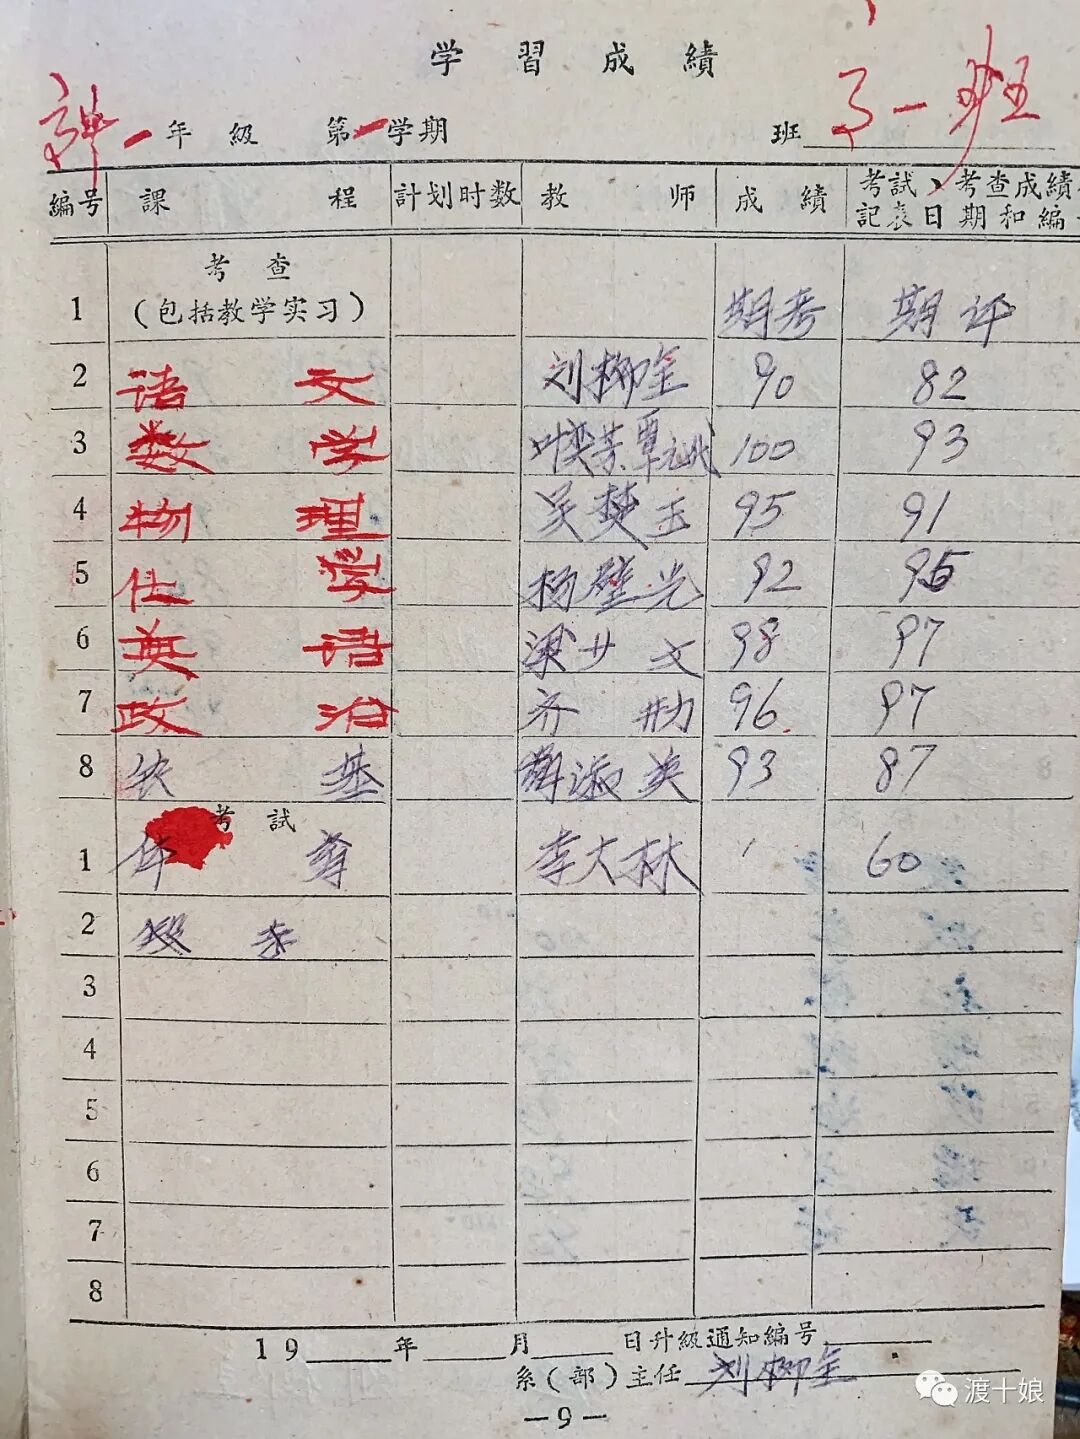 学習成績
高中一年級 第一学期 班 高一班
編号 課程 計划时数 教师 成績 考試、考查成績記表日期和編
考查
1 (包括教学实习) 期考 期评
2 语文 刘柳生 90 82
3 数学 叶奕芳 覃 100 93
4 物理 吴楚玉 95 91
5 化学 杨壁光 92 95
6 英语 梁少文 98 97
7 政治 齐 96 97
8 农基 淑英 93 87
考試
1 体育 李大林 60
2
3
4
5
6
7
8
19 年 月 日升級通知編号
系(部)主任 刘柳生
—9—
渡十娘